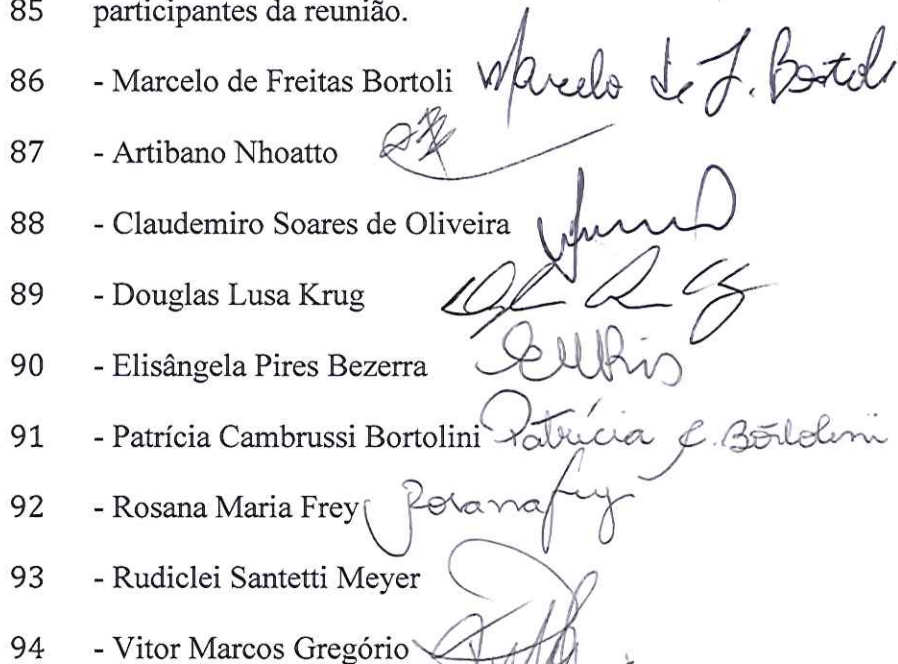 85 participantes da reunião.
86 - Marcelo de Freitas Bortoli Marcelo de F. Bortoli
87 - Artibano Nhoatto
88 - Claudemiro Soares de Oliveira
89 - Douglas Lusa Krug
90 - Elisângela Pires Bezerra
91 - Patrícia Cambrussi Bortolini Patrícia C. Bortolini
92 - Rosana Maria Frey Rosana Frey
93 - Rudiclei Santetti Meyer
94 - Vitor Marcos Gregório